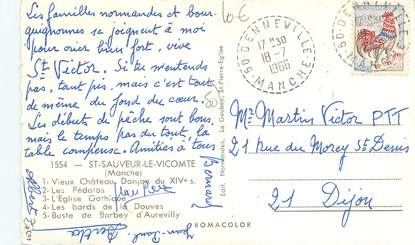 Les familles normandes et bour-
guignonnes se joignent à moi
pour crier bien fort, vive
St Victor. Si tu m'entends
pas, tant pis, mais c'est tout
de même du fond du cœur.
Les débuts de pêche sont bons,
mais le temps pas du tout, la
table compense. Amitiés à tous
Bernard
10€
50 DENNEVILLE
17H30
18-7
1966
MANCHE
50 DENNEVILLE
MANCHE
Mr Martin Victor PTT
21 rue du Morey St Denis
21 Dijon
1554 - ST-SAUVEUR-LE-VICOMTE
(Manche)
1-Vieux Château Donjon du XIVe s.
2-Les Pédalos
3-L'Église Gothique
4-Les bords de la Douves
5-Buste de Barbey d'Aurevilly
Albert
Jean-Paul
Bertha
ROMACOLOR